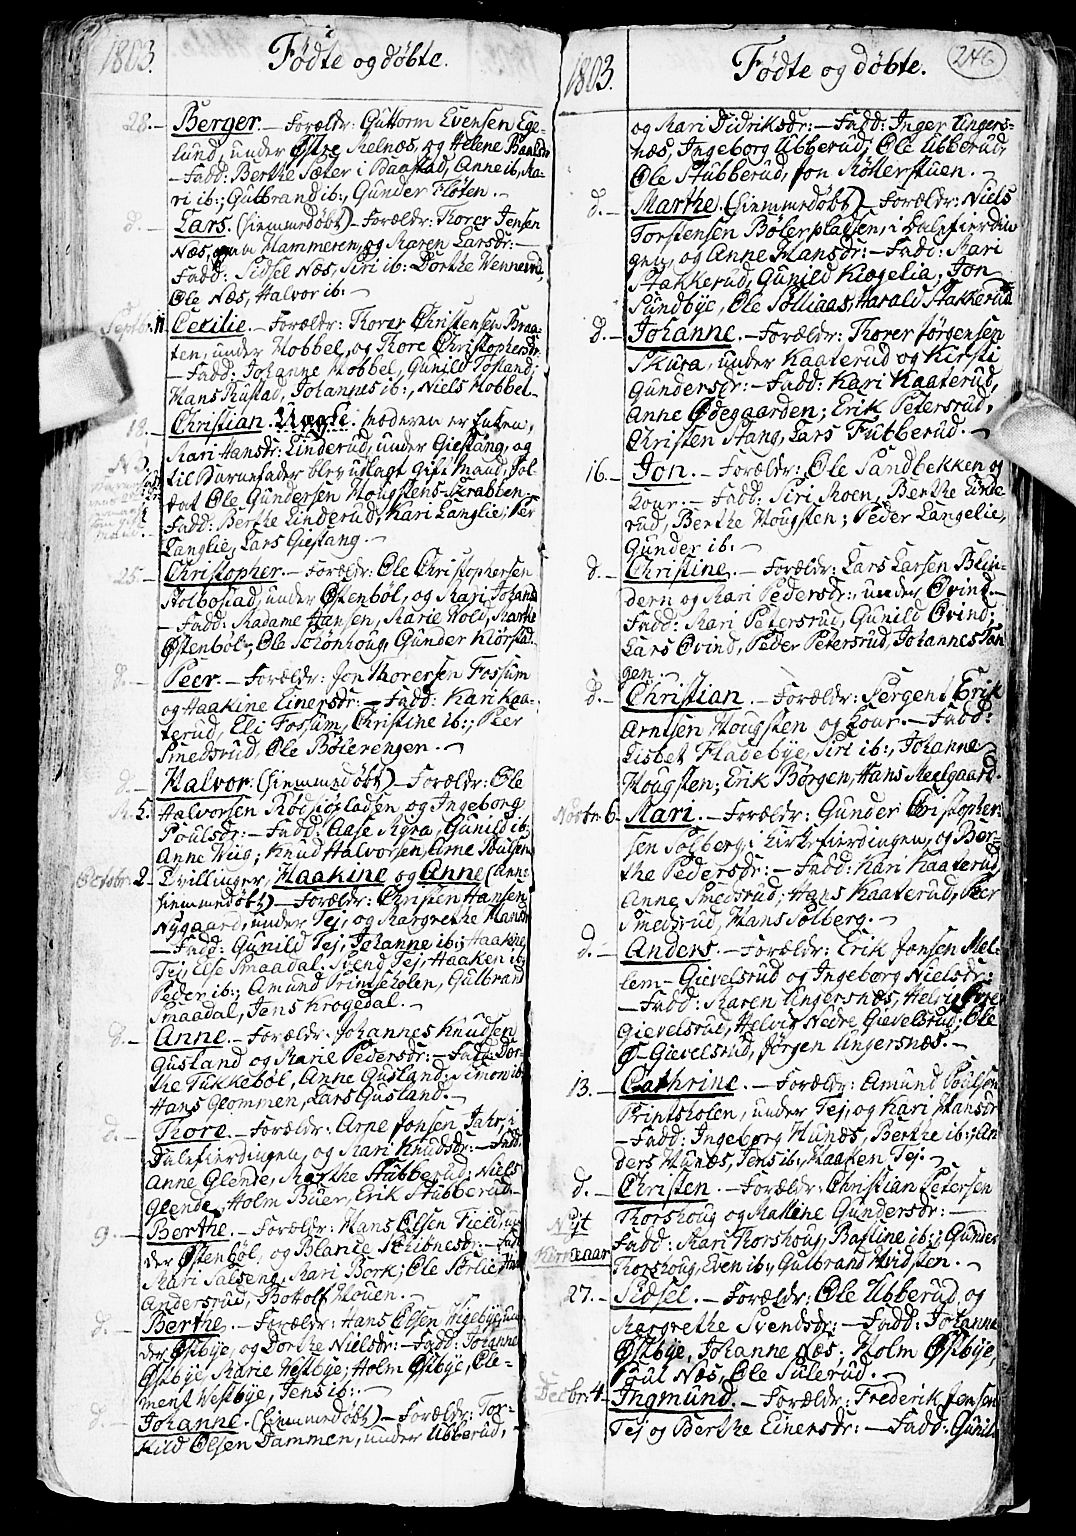 1803.
Födte og döbte.
28.- Berger. - Forældr: Guttorm Evensen Ege-
lund, under Østre Melnæs, og Helene Paalsdr
- Fadd: Berthe Sæter i Baastad, Anne ib, Ka-
ri ib:, Gulbrand ib:, Gunder Fløten. -
d. - Lars. (hiemmedøbt) - Forældr: Thorer Jensen
Næs, Hammeren, og Karen Larsdr: -
Fadd: Sidsel Næs, Siri ib: Dorthe Wennerud,
Ole Næs, Halvor ib: -
Septbr: 11 Cecilie. - Forældr: Thorer Christensen Braa-
ten, under Mobbel, og Thore Christophersdr
- Fadd: Johanne Mobbel, Gunild Tosland;
Hans Rustad, Johannes ib:, Niels Mobbel -
18. - Christian. Uægte. Moderen er Enken,
Mari Hansdr: Linderud, under Giestang, og
til Barnefader blev udlagt gift Mand, Sol-
dat Ole Gundersen Hougstens-Skrabben.
Fadd: Berthe Linderud, Kari Langlie; Per
Langlie, Lars Giestang. -
25. - Christopher. - Forældr: Ole Christophersen
Molbostad, under Østenbøl, og Mari Johansd
- Fadd: Madame Hansen, Marie Wold, Marthe
Østenbøl; Ole Schönhoug, Gunder Mörstad.
d. - Peer. - Forældr: Jon Thorersen Fossum
og Haakine Einersdr: - Fadd: Kari Kaa-
terud, Eli Fossum, Christine ib:; Peer
Smedsrud, Ole Böierengen. -
d. - Halvor. (hiemmedøbt) - Forældr: Ole
Halvorsen Rødsiøpladsen og Ingeborg
Poulsdr: - Fadd: Aase Mgra, Gunild ib,
Anne Wiig; Knud Halvorsen, Arne Poulsen
Octobr: 2 Tvillinger, Haakine og Anne (Anne
hiemmedøbt) - Forældr: Christen Hansen
Nygaard, under Tej, og Margrethe Hansdr
- Fadd: Gunild Tej, Johanne ib:; Haakine
Tej, Else Smaadal: Svend Tej, Haaken ib,
Peder ib:; Amund Printseholen, Gulbrand
Smaadal, Jens Krogedal. -
d. - Anne. - Forældr: Johannes Knudsen
Gusland og Marie Pedersdr: - Fadd: Dor-
the Tukkebøl, Anne Gusland: Simon ib
Hans Glommen, Lars Gusland. -
d. - Thore. - Forældr: Arne Jonsen Jahr, i
Dalefierdingen, og Mari Knudsdr: - Fadd
Anne Glende, Marthe Stubberud; Niels
Glende, Holm Buer, Erik Stubberud -
9. - Berthe. - Forældr: Hans Olsen Field, un
der Østenbøl, og Blance Schiönesdr: - Fadd
Mari Salseng, Mari Bork; Ole Sørlie, Hans
Andersrud, Bottolf Mouen. -
d. - Berthe. - Forældr: Hans Olsen Wigebye, un
der Østbye, og Dorthe Nielsdr: - Fadd: Johanne
Østbye, Marie Westbye; Holm Østbye, Cle-
ment Westbye, Jens ib: -
d. - Johanne. (hiemmedøbt) - Forældr: Tor-
kild Olsen Dammen, under Ubberud,
1803.
Födte og döbte.
246
og Mari Didriksdr: - Fadd: Inger Ungers-
næs, Ingeborg Ubberud; Ole Ubberud,
Ole Stubberud, Jon Møllerstuen. -
d. - Marthe (hiemmedøbt) - Forældr: Niels
Torstensen Bølerpladsen, i Dalefierdin
gen, og Anne Hansdr: - Fadd: Mari
Stakkerud, Gunild Kiogelia; Jon
Sundbye, Ole Solliaas, Harald Stakkerud
d. - Johanne. - Forældr: Thorer Jørgensen
Skura, under Kaaterud og Kirsti
Gundersdr: - Fadd: Kari Kaaterud,
Anne Ødegaarden; Erik Petersrud,
Christen Stang, Lars Fubberud. -
16. - Jon. - Forældr: Ole Sandbekken og
Hour. - Fadd: Siri Moen, Berthe Linde
rud, Berthe Hougsten; Peder Langelie,
Gunder ib: -
d. - Christine. - Forældr: Lars Larsen Blin-
dern og Mari Pedersdr:, under Øvind. -
Fadd: Mari Petersrud, Gunild Øvind;
Lars Øvind, Peder Petersrud, Johannes Tan
gen. -
d. - Christian. - Forældr: Sergent Erik
Arntsen Hougsten og Hour. - Fadd:
Lisbet Fladebye, Siri ib:, Johanne
Hougsten; Erik Börgen, Hans Melgaard.
Novbr: 6 - Mari. - Forældr: Gunder Christopher-
sen Solberg i Kirkefierdingen, og Ber-
the Pedersdr: - Fadd: Kari Kaaterud,
Anne Smedsrud; Hans Kaaterud, Peer
Smedsrud, Hans Solberg. -
d. - Anders. - Forældr: Erik Jonsen Mel-
lem-Gievelsrud og Ingeborg Nielsdr:
- Fadd: Maren Ungersnæs, Helvig Øvre
Gievelsrud, Helvig Nedre Gievelsrud; Ole
Ø-Gievelsrud, Jörgen Ungersnæs. -
13. - Cathrine. - Forældr: Amund Poulsen
Printsholen, under Tej, og Kari Hansdr
- Fadd: Ingeborg Hunæs, Berthe ib:; An
ders Hunæs, Jens ib:, Haaken Tej. -
d. - Christen. - Forældr: Christian Petersen
Thorshoug og Malene Gundersdr: -
Nyt
Kirkeaar
Fadd: Mari Thorshoug, Basline ib:; Gunder
Thorshoug, Even ib:, Gulbrand Hvidsten. -
27. - Sidsel. - Forældr: Ole Ubberud og
Margrethe Svendsdr: - Fadd: Johanne
Østbye, Johanne Næs; Holm Østbye,
Poul Næs, Ole Sulerud. -
Decbr: 4 - Ingmund. - Forældr: Frederik Jensen
Tej og Berthe Einersdr: - Fadd: Gunil-